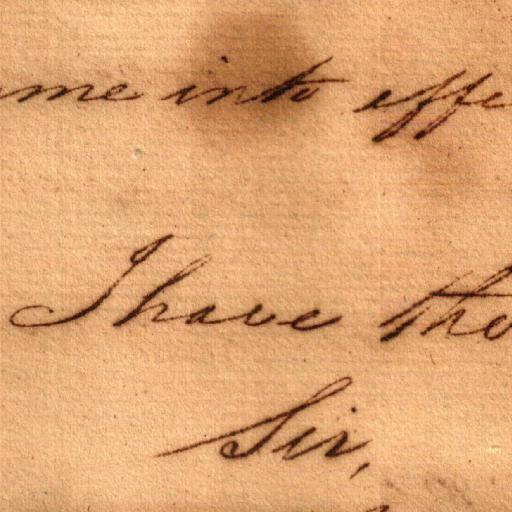 me into effe
I have the
Sir,